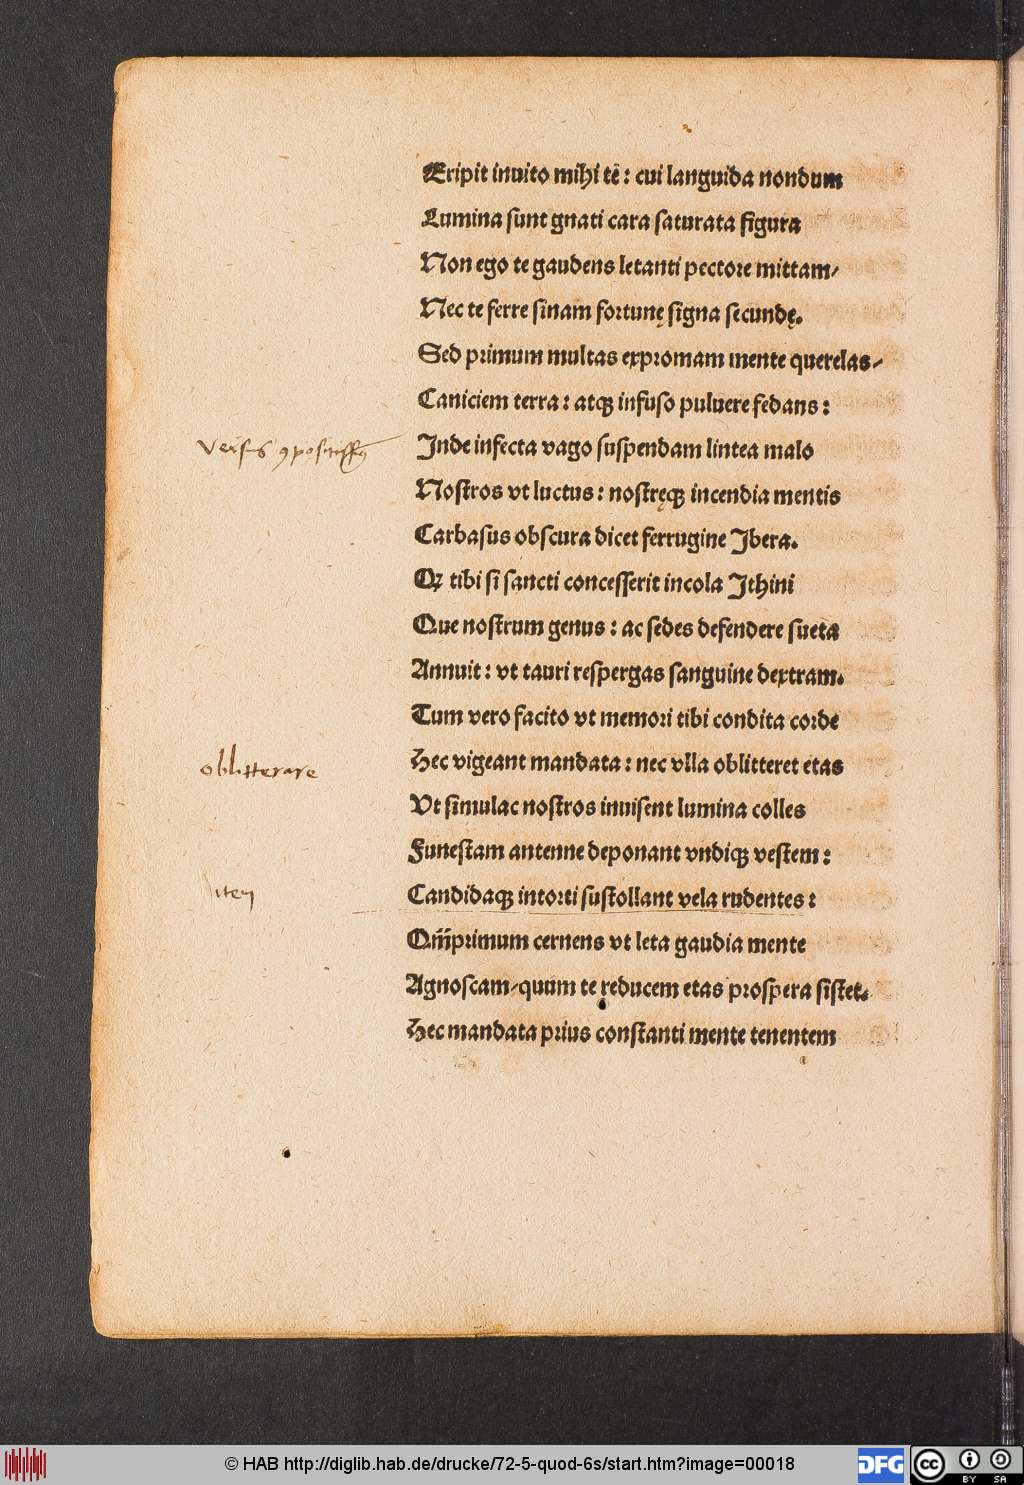 Eripit inuito mihi tē : cui languida nondum
Lumina sunt gnati cara saturata figura
Non ego te gaudens letanti pectore mittam/
Nec te ferre sinam fortunę signa secundę.
Sed primum multas expromam mente querelas/
Caniciem terra : atqꝫ infuso puluere fedans :
versus ꝯpositiss⁹
Inde infecta vago suspendam lintea malo
Nostros vt luctus : nostręqꝫ incendia mentis
Carbasus obscura dicet ferrugine Ibera.
Qꝫ tibi si sancti concesserit incola Ithini
Que nostrum genus : ac sedes defendere sueta
Annuit : vt tauri respergas sanguine dextram.
Tum vero facito vt memori tibi condita corde
oblitterare
Hec vigeant mandata : nec vlla oblitteret etas
Vt simulac nostros inuisent lumina colles
Funestam antenne deponant vndiqꝫ vestem :
iteꝫ
Candidaqꝫ intorti sustollant vela rudentes :
Qm̄primum cernens vt leta gaudia mente
Agnoscam/quum te reducem etas prospera sistet.
Hec mandata prius constanti mente tenentem
© HAB http://diglib.hab.de/drucke/72-5-quod-6s/start.htm?image=00018
DFG
cc
BY SA